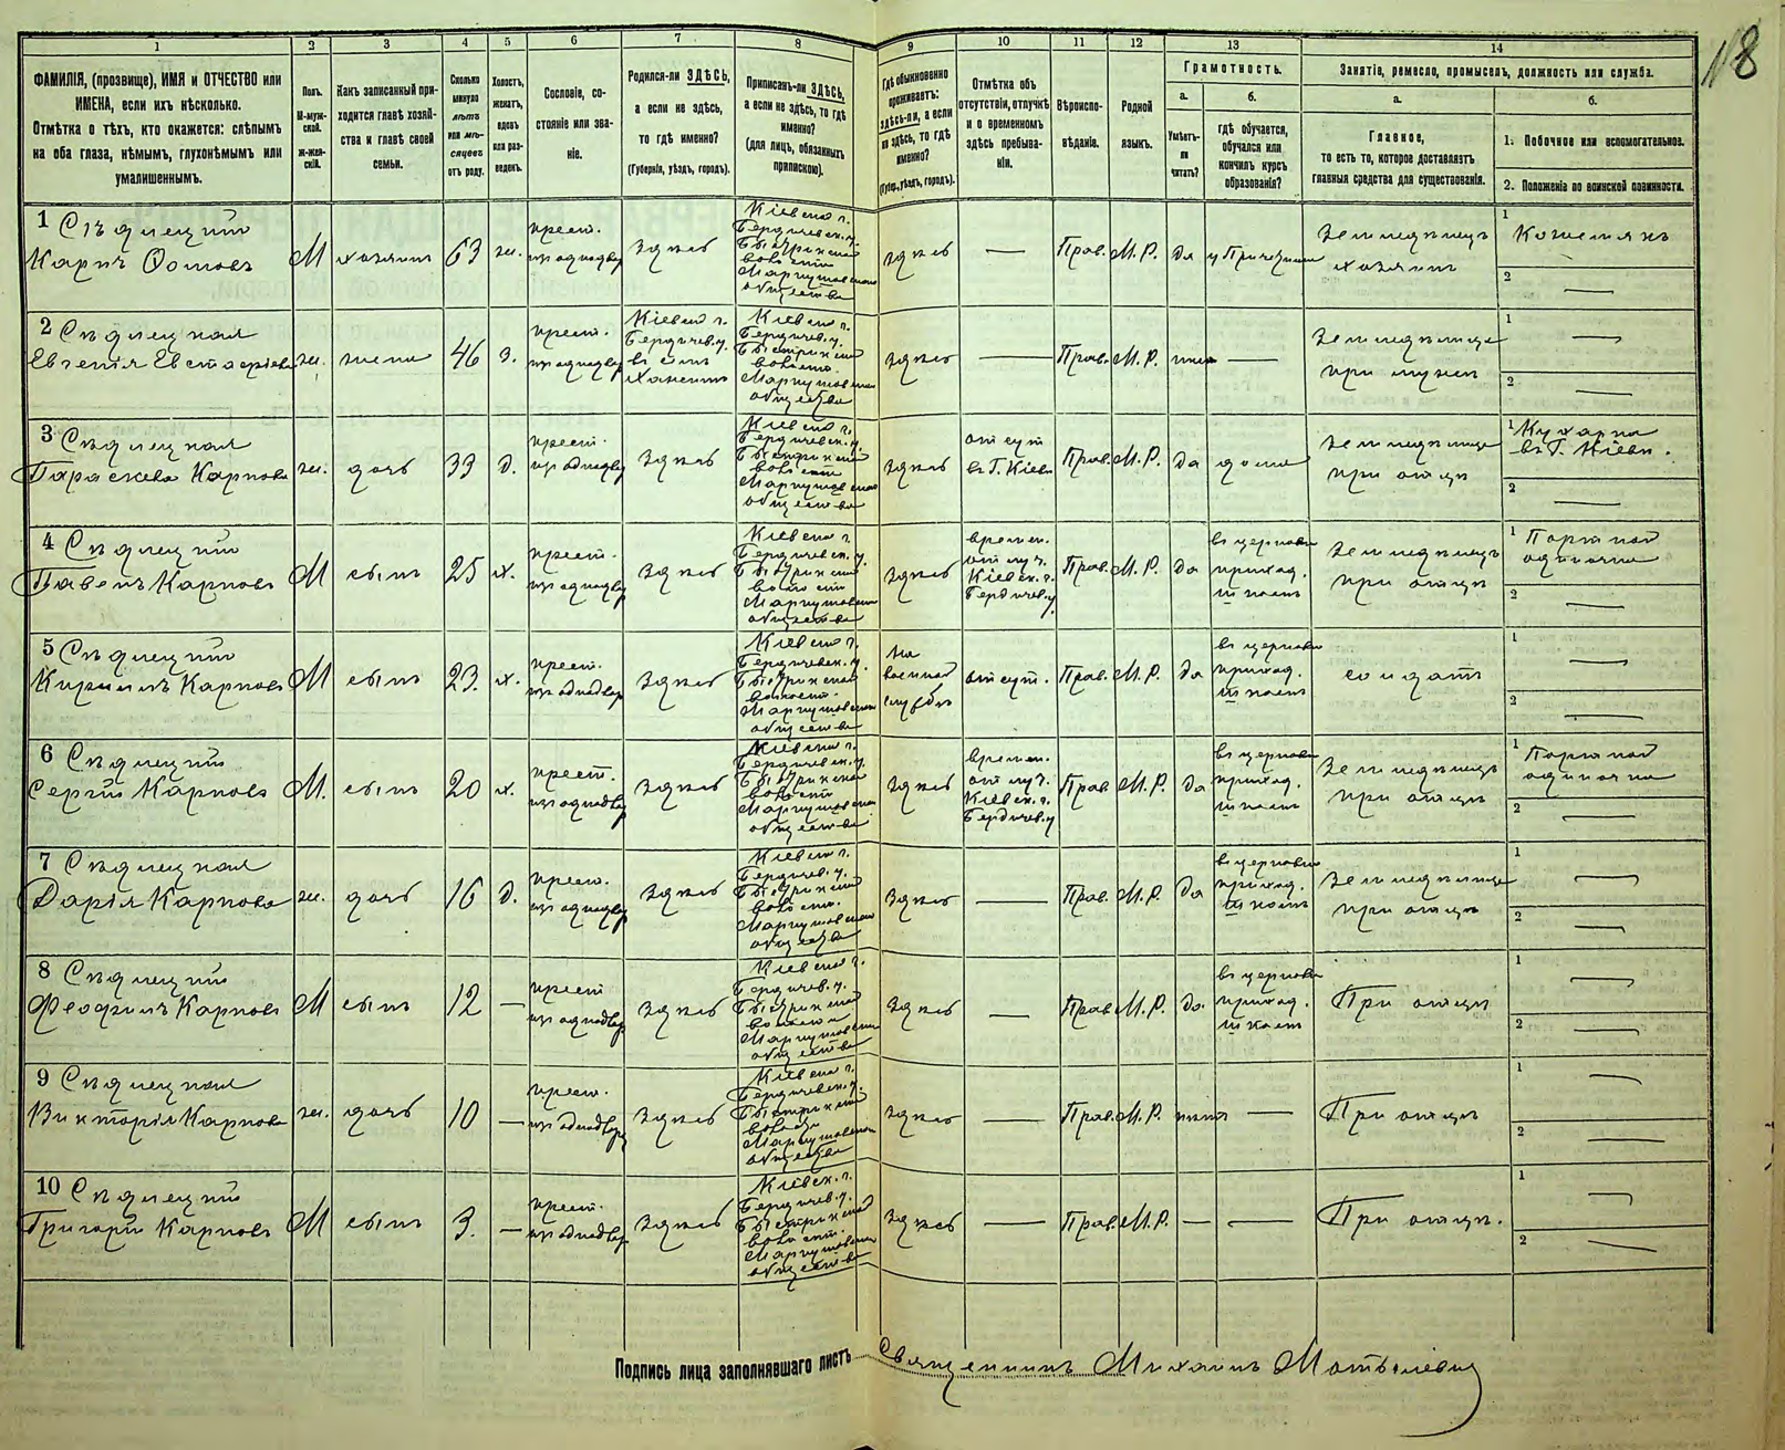 18
1
2
3
4
5
6
7
8
9
10
11
12
13
14
ФАМИЛІЯ, (прозвище), ИМЯ и ОТЧЕСТВО или
ИМЕНА, если ихъ нѣсколько.
Отмѣтка о тѣхъ, кто окажется: слѣпымъ
на оба глаза, нѣмымъ, глухонѣмымъ или
умалишеннымъ.
Полъ.
М-муж-
ской.
ж-жен-
скій.
Какъ записанный при-
ходится главѣ хозяй-
ства и главѣ своей
семьи.
Сколько
минуло
лѣтъ
или мѣ-
сяцевъ
отъ роду.
Холостъ,
женатъ,
вдовъ
или раз-
веденъ.
Сословіе, со-
стояніе или зва-
ніе.
Родился-ли ЗДѢСЬ,
а если не здѣсь,
то гдѣ именно?
(Губернія, уѣздъ, городъ).
Приписанъ-ли ЗДѢСЬ,
а если не здѣсь, то гдѣ
именно?
(для лицъ, обязанныхъ
припискою).
Гдѣ обыкновенно
проживаетъ:
здѣсь-ли, а если
не здѣсь, то гдѣ
именно?
(Губер., уѣздъ, городъ).
Отмѣтка объ
отсутствіи, отлучкѣ
и о временномъ
здѣсь пребыва-
ніи.
Вѣроиспо-
вѣданіе.
Родной
языкъ.
Грамотность.
а.
Умѣетъ-
ли
читать?
б.
гдѣ обучается,
обучался или
кончилъ курсъ
образованія?
Занятіе, ремесло, промыселъ, должность или служба.
а.
Главное,
то есть то, которое доставляетъ
главныя средства для существованія.
б.
1. Побочное или вспомогательное.
2. Положеніе по воинской повинности.
1 Сѣдлецкій
Карпъ Ѳомовъ
М
хозяинъ
63
ж.
крест.
изъ однодвор
здѣсь
Кіевской г.
Бердичевск. у.
Быстрикской
волости
Маркушовскаго
общества
здѣсь
—
Прав.
М. Р.
да
Земледѣлецъ
хозяинъ
1
2 —
2 Сѣдлецкая
Евгенія Евстафіева
ж.
жена
46
з.
крест.
изъ однодвор
Кіевской г.
Бердичев. у.
въ селѣ
Кіевской г.
Бердичев. у.
Быстрикской
волости
Маркушовскаго
общества
здѣсь
—
Прав.
М. Р.
нѣтъ
—
Земледѣлица
при мужѣ
1 —
2 —
3 Сѣдлецкая
Параскева Карпова
ж.
дочь
33
д.
крест.
изъ однодвор
здѣсь
Кіевской г.
Бердичевск. у.
Быстрикской
волости
Маркушовскаго
общества
здѣсь
отсут
въ Г. Кіевѣ
Прав.
М. Р.
да
дома
Земледѣлица
при отцѣ
1 Кухарка
въ Г. Кіевѣ.
2 —
4 Сѣдлецкій
Павелъ Карповъ
М
сынъ
25
х.
крест.
изъ однодвор
здѣсь
Кіевской г.
Бердичевск. у.
Быстрикской
волости
Маркушовскаго
общества
здѣсь
времен.
отлуч.
Кіевск. г.
Бердичев. у.
Прав.
М. Р.
да
въ церковно
приход.
школѣ
Земледѣлецъ
при отцѣ
1 Портной
одиночка
2 —
5 Сѣдлецкій
Кириллъ Карповъ
М
сынъ
23.
х.
крест.
изъ однодвор
здѣсь
Кіевской г.
Бердичевск. у.
Быстрикской
волости
Маркушовскаго
общества
На
военной
службѣ
отсут.
Прав.
М. Р.
да
въ церковно
приход.
школѣ
солдатъ
1 —
2 —
6 Сѣдлецкій
Сергій Карповъ
М.
сынъ
20
х.
крест.
изъ однодвор
здѣсь
Кіевской г.
Бердичевск. у.
Быстрикской
волости
Маркушовскаго
общества
здѣсь
времен.
отлуч.
Кіевск. г.
Бердичев. у
Прав
М. Р.
да
въ церковно
приход.
школѣ
Земледѣлецъ
при отцѣ
1 Портной
одиночка
2 —
7 Сѣдлецкая
Дарія Карпова
ж.
дочь
16
д.
крест.
изъ однодвор
здѣсь
Кіевской г.
Бердичев. у.
Быстрикской
волости
Маркушовскаго
общества
здѣсь
—
Прав.
М. Р.
да
въ церковно
приход.
школѣ
Земледѣлица
при отцѣ
1 —
2 —
8 Сѣдлецкій
Феофилъ Карповъ
М
сынъ
12
—
крест
изъ однодвор
здѣсь
Кіевской г.
Бердичев. у.
Быстрикской
волости
Маркушовскаго
общества
здѣсь
—
Прав
М. Р.
да.
въ церковно
приход.
школѣ
При отцѣ
1 —
2 —
9 Сѣдлецкая
Викторія Карпова
ж.
дочь
10
—
крест.
изъ однодвор
здѣсь
Кіевской г.
Бердичевск. у.
Быстрикской
волости
Маркушовскаго
общества
здѣсь
—
Прав.
М. Р.
нѣтъ
—
При отцѣ
1 —
2 —
10 Сѣдлецкій
Григорій Карповъ
М
сынъ
3.
—
крест.
изъ однодвор
здѣсь
Кіевск. г.
Бердичев. у.
Быстрикской
волости
Маркушовскаго
общества
здѣсь
—
Прав.
М. Р.
—
—
При отцѣ.
1 —
2 —
Подпись лица заполнявшаго листъ Священникъ Михаилъ